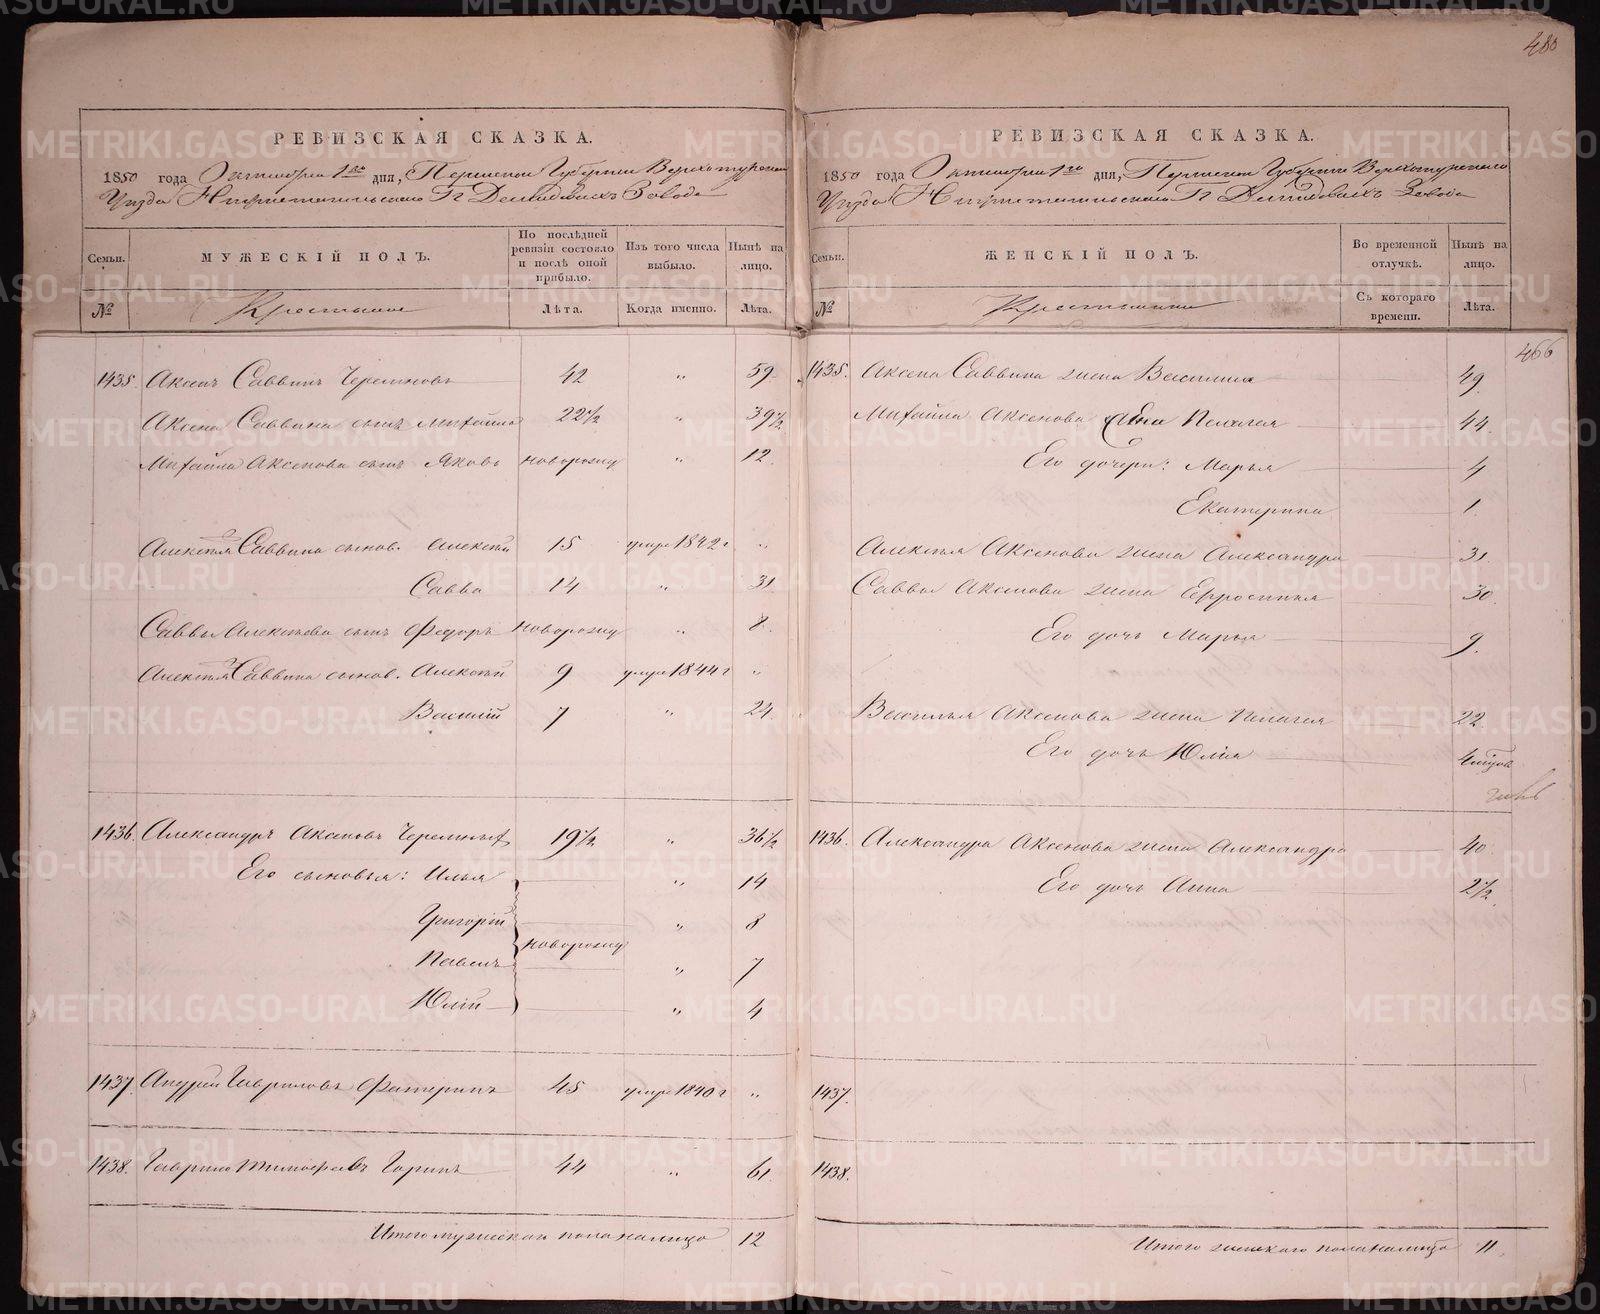 480
РЕВИЗСКАЯ СКАЗКА.
1850 года Октября 1го дня, Пермской Губернии Верхотурскаго
Уезда Нижнетагильскаго Гг Демидовыхъ Завода
Семьи.
МУЖЕСКІЙ ПОЛЪ.
По послѣдней ревизіи состояло и послѣ оной прибыло.
Изъ того числа выбыло.
Нынѣ на лицо.
№
Крестьяне
Лѣта.
Когда именно.
Лѣта.
1435. Аксенъ Саввинъ Черемновъ 42 " 59
Аксена Саввина сынъ Михайла 22½ " 39½
Михайла Аксенова сынъ Яковъ новорожд " 12
Алексѣя Саввина сынов. Алексѣй 15 умре 1842 г "
Савва 14 " 31
Саввы Алексѣева сынъ Федоръ новорожд " 8
Алексѣя Саввина сынов. Алексѣй 9 умре 1844 г "
Василій 7 " 24
1436. Александръ Аксеновъ Черемныхъ 19½ " 36½
Его сыновья: Илья " 14
Григорій " 8
новорожд
Павелъ " 7
Юлій " 4
1437. Андрей Гавриловъ 45 умре 1840 г "
1438. Гаврило Тимофеевъ Горинъ 44 " 61
Итого мужеска пола налицо 12
РЕВИЗСКАЯ СКАЗКА.
1850 года Октября 1го дня, Пермской Губерніи Верхотурскаго
Уезда Нижнетагильскаго Гг Демидовыхъ Завода
Семьи.
ЖЕНСКІЙ ПОЛЪ.
Во временной отлучкѣ.
Нынѣ на лицо.
№
Крестьянки
Съ котораго времени.
Лѣта.
466
1435. Аксена Саввина жена Василиса 49
Михайла Аксенова жена Пелагея 44
Его дочери: Марья 4
Екатерина 1
Алексѣя Аксенова жена Александра 31
Саввы Аксенова жена Ефросинья 30
Его дочь Марья 9
Василья Аксенова жена Пелагея 22
Его дочь Юлія 4
1436. Александра Аксенова жена Александра 40
Его дочь Анна 2½
1437.
1438.
Итого женскаго пола налицо 11
METRIKI.GASO-URAL.RU